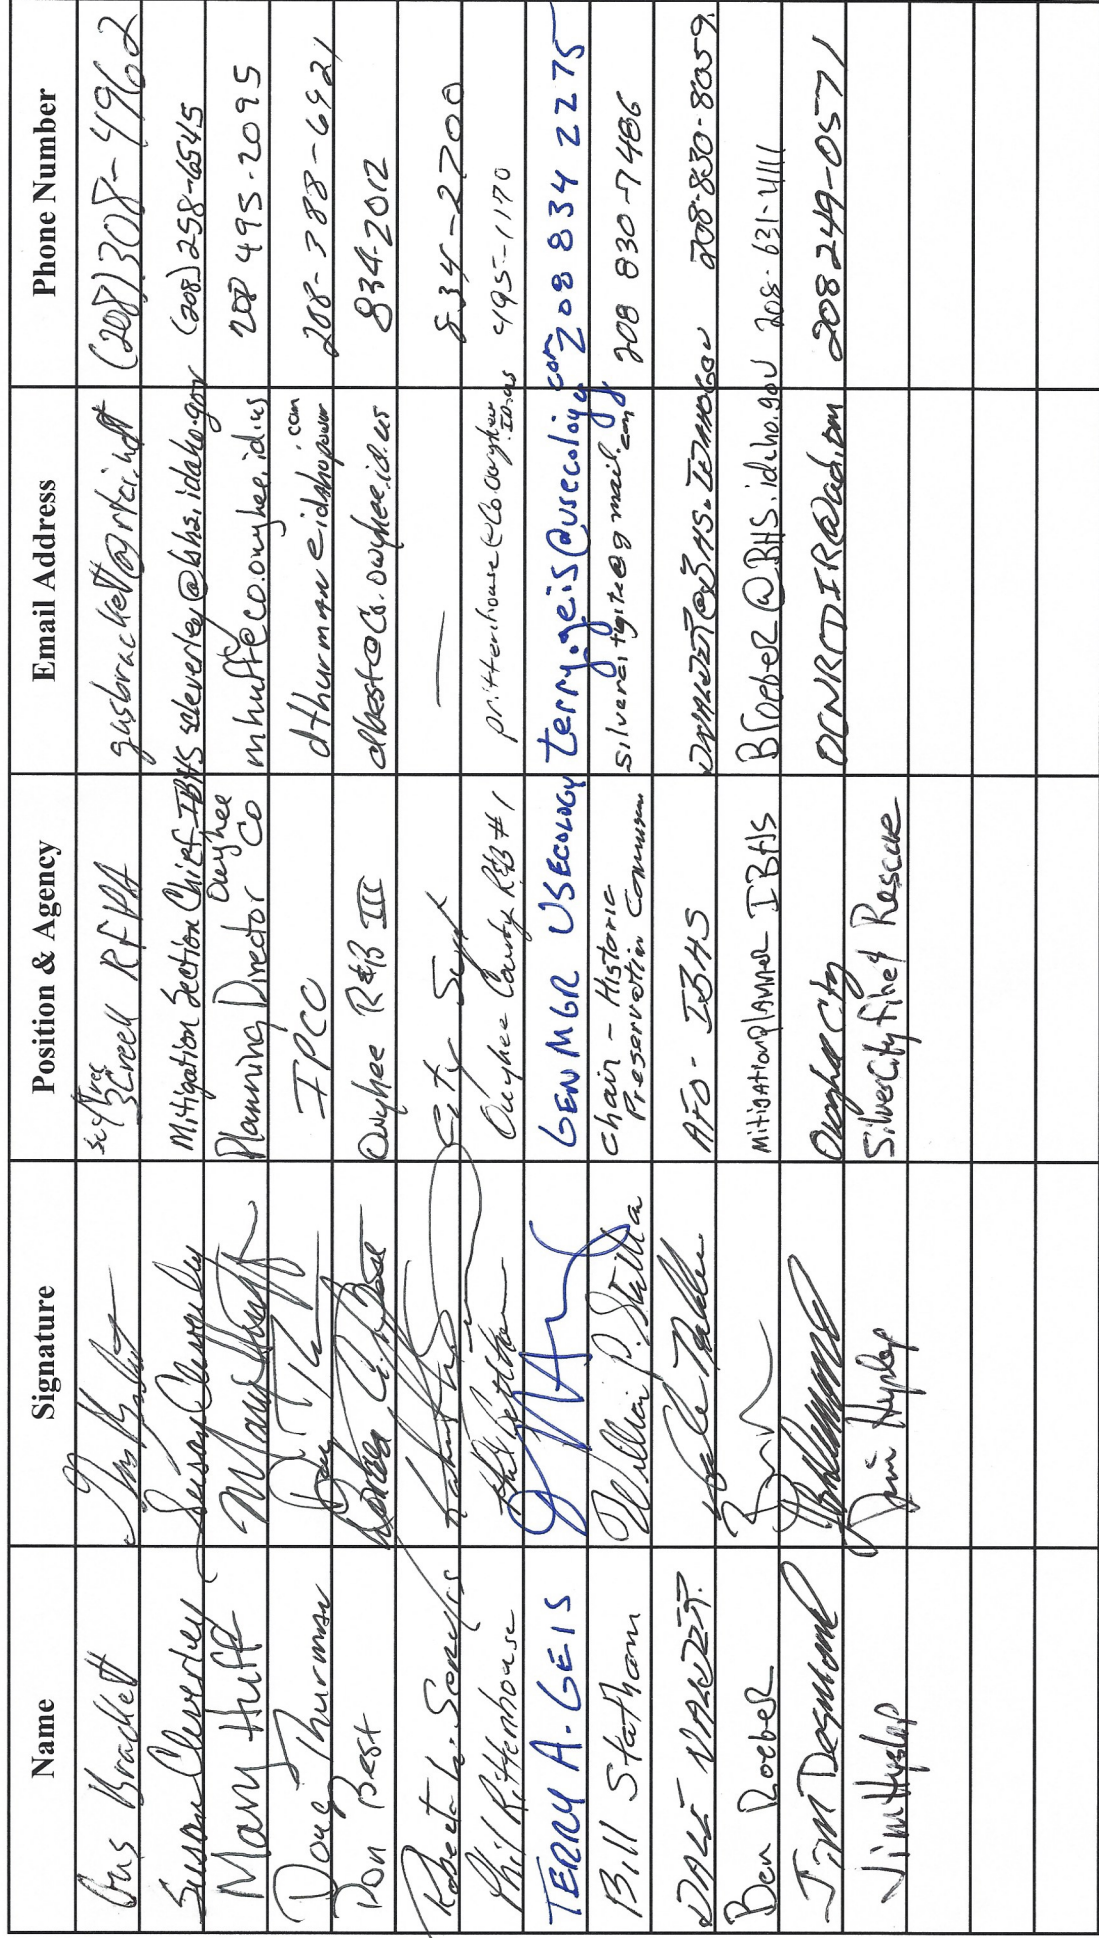 Name Signature Position & Agency Email Address Phone Number
Gus Brackett 3 Creek RFPA gusbrackett@rtci.net (208) 308-4962
Susan Cleverley Susan Cleverley Mitigation Section Chief-IBHS scleverley@bhs.idaho.gov (208) 258-6545
Mary Huff Mary Huff Planning Director Owyhee Co mhuff@co.owyhee.id.us 208 495-2095
Doug Thurman IPCO dthurman@idahopower.com 208-388-6921
Don Best Owyhee R&B III dbest@co.owyhee.id.us 834-2012
City — 834-2700
Phil Rittenhouse Owyhee County R&B #1 prittenhouse@co.owyhee.id.us 495-1170
TERRY A. GEIS GEN MGR USECOLOGY terry.geis@usecology.com 208 834 2275
Bill Statham Chair - Historic Preservation Commission @gmail.com 208 830-7486
DALE NALDER Dale Nalder AFO - IBHS DNALDER@BHS.IDAHO.GOV 208-830-8059
Ben Roeber Mitigation planner IBHS BRoebeR@BHS.idaho.gov 208-631-4111
Jim Desmond Owyhee Cty OCNRCDIR@aol.com 208 249-0571
Jim Hyslop Jim Hyslop Silver City Fire & Rescue